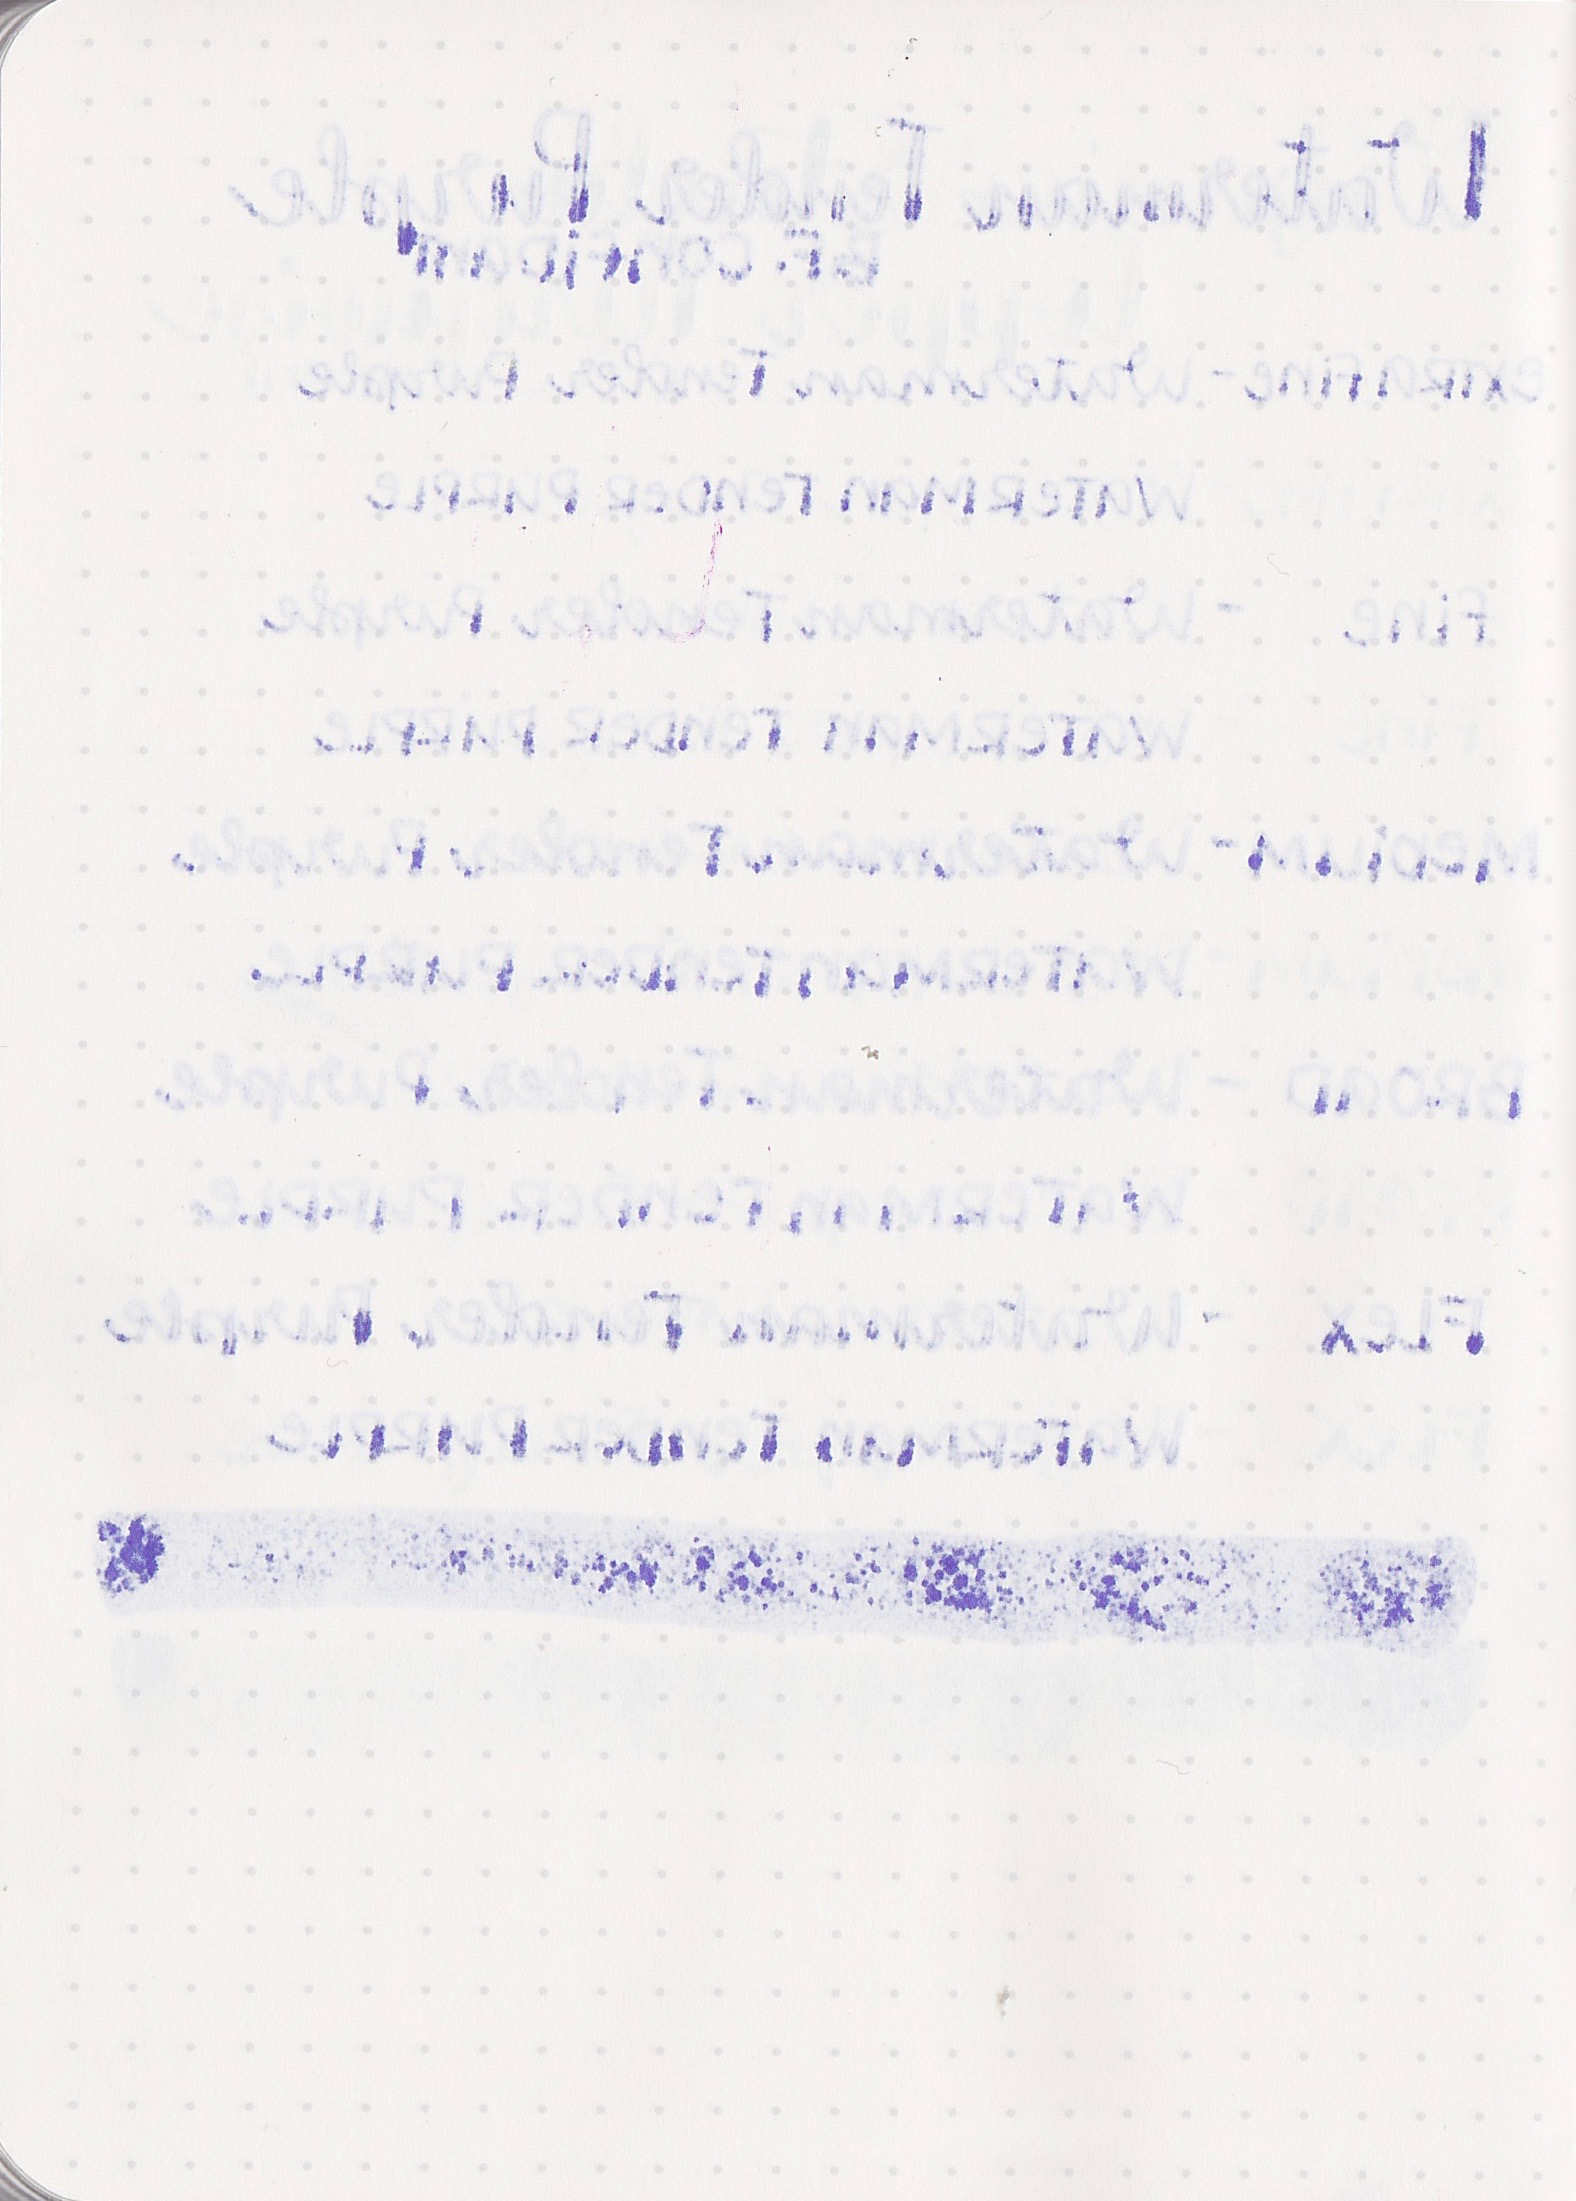 Waterman Tender Purple
extra fine - Waterman Tender Purple
WATERMAN TENDER PURPLE
Fine - Waterman Tender Purple
WATERMAN TENDER PURPLE
MEDIUM - Waterman Tender Purple
WATERMAN TENDER PURPLE
BROAD - Waterman Tender Purple
WATERMAN TENDER PURPLE
FLEX - Waterman Tender Purple
WATERMAN TENDER PURPLE